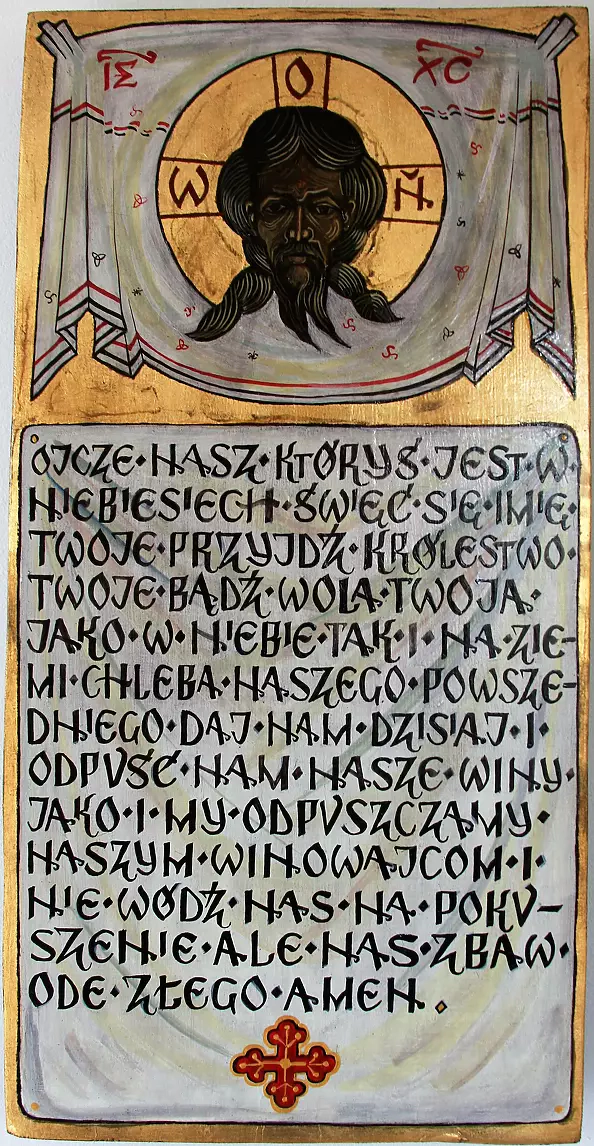 ІС ХС
О
Ѡ Н
OJCZE·NASZ·KTÓRYŚ·JEST·W·
NIEBIESIECH·ŚWIĘĆ·SIĘ·IMIĘ·
TWOJE·PRZYJDŹ·KRÓLESTWO·
TWOJE·BĄDŹ·WOLA·TWOJA·
JAKO·W·NIEBIE·TAK·I·NA·ZIE-
MI·CHLEBA·NASZEGO·POWSZE-
DNIEGO·DAJ·NAM·DZISIAJ·I·
ODPVŚĆ·NAM·NASZE·WINY·
JAKO·I·MY·ODPVSZCZAMY·
NASZYM·WINOWAJCOM·I·
NIE·WÓDŹ·NAS·NA·POKV-
SZENIE·ALE·NAS·ZBAW·
ODE·ZŁEGO·AMEN.